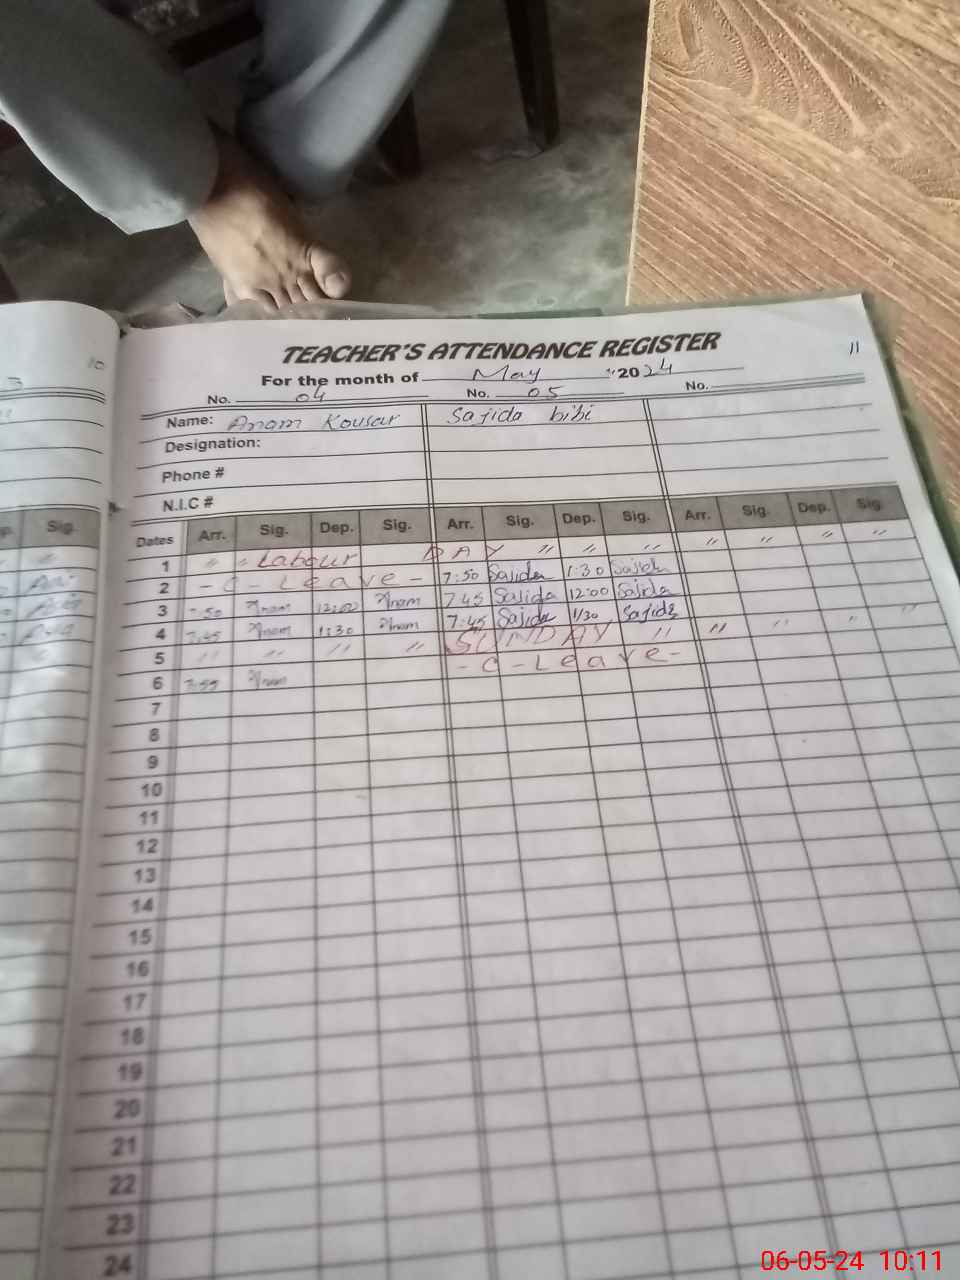 TEACHER'S ATTENDANCE REGISTER
11
For the month of May 2024
No. 04 No. 05 No.
Name: Anam Kousar Sajida bibi
Designation:
Phone #
N.I.C #
Dates Arr. Sig. Dep. Sig. Arr. Sig. Dep. Sig. Arr. Sig. Dep. Sig.
1 " " Labour DAY " " " " " " "
2 - C - Leave - 7:50 Sajida 1:30 Sajida
3 7:50 Anam 12:00 Anam 7:45 Sajida 12:00 Sajida
4 7:45 Anam 1:30 Anam 7:45 Sajida 1/30 Sajida
5 " " " " SUNDAY " " " " "
6 7:55 Anam - C - Leave -
7
8
9
10
11
12
13
14
15
16
17
18
19
20
21
22
23
24
10
Sig.
06-05-24 10:11